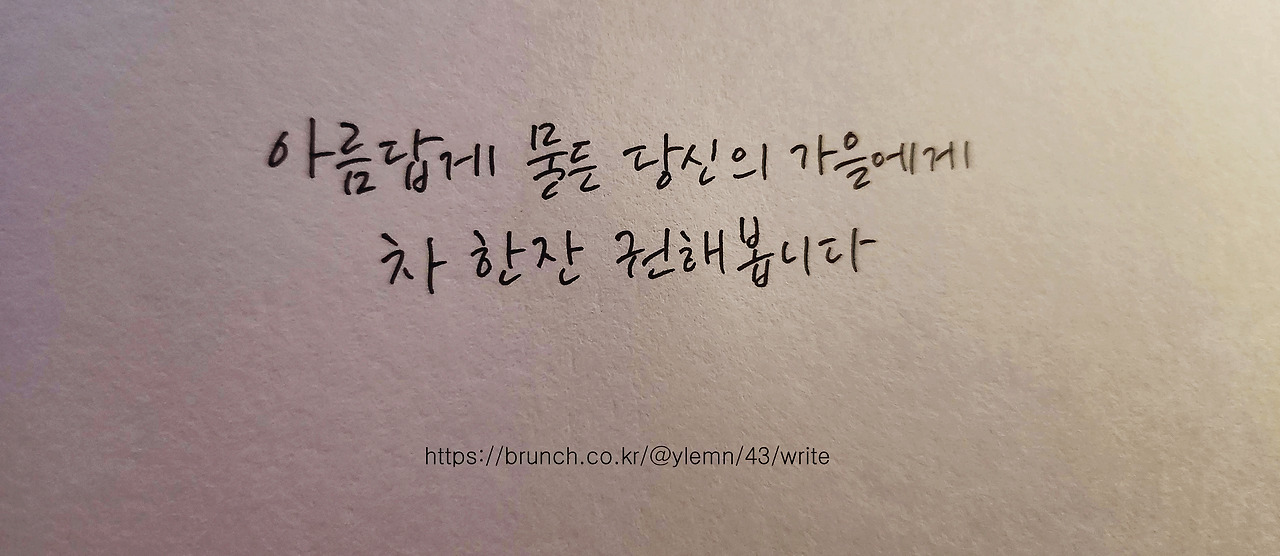 아름답게 물든 당신의 가을에게
차 한잔 권해봅니다
https://brunch.co.kr/@ylemn/43/write